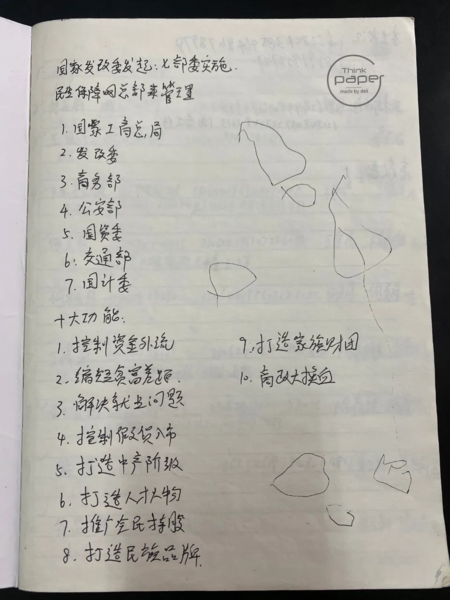 国家发改委发起:七部委实施.
民生保障网总部来管理
Think
paper
made by deli
1. 国家工商总局
2. 发改委
3. 商务部
4. 公安部
5. 国资委
6. 交通部
7. 国计委
十大功能:
1. 控制资金外流
2. 缩短贫富差距.
3. 解决就业问题
4. 控制假货入市
5. 打造中产阶级
6. 打造人才人物
7. 推广全民持股
8. 打造民族品牌.
9. 打造家族财团
10. 商政大换血